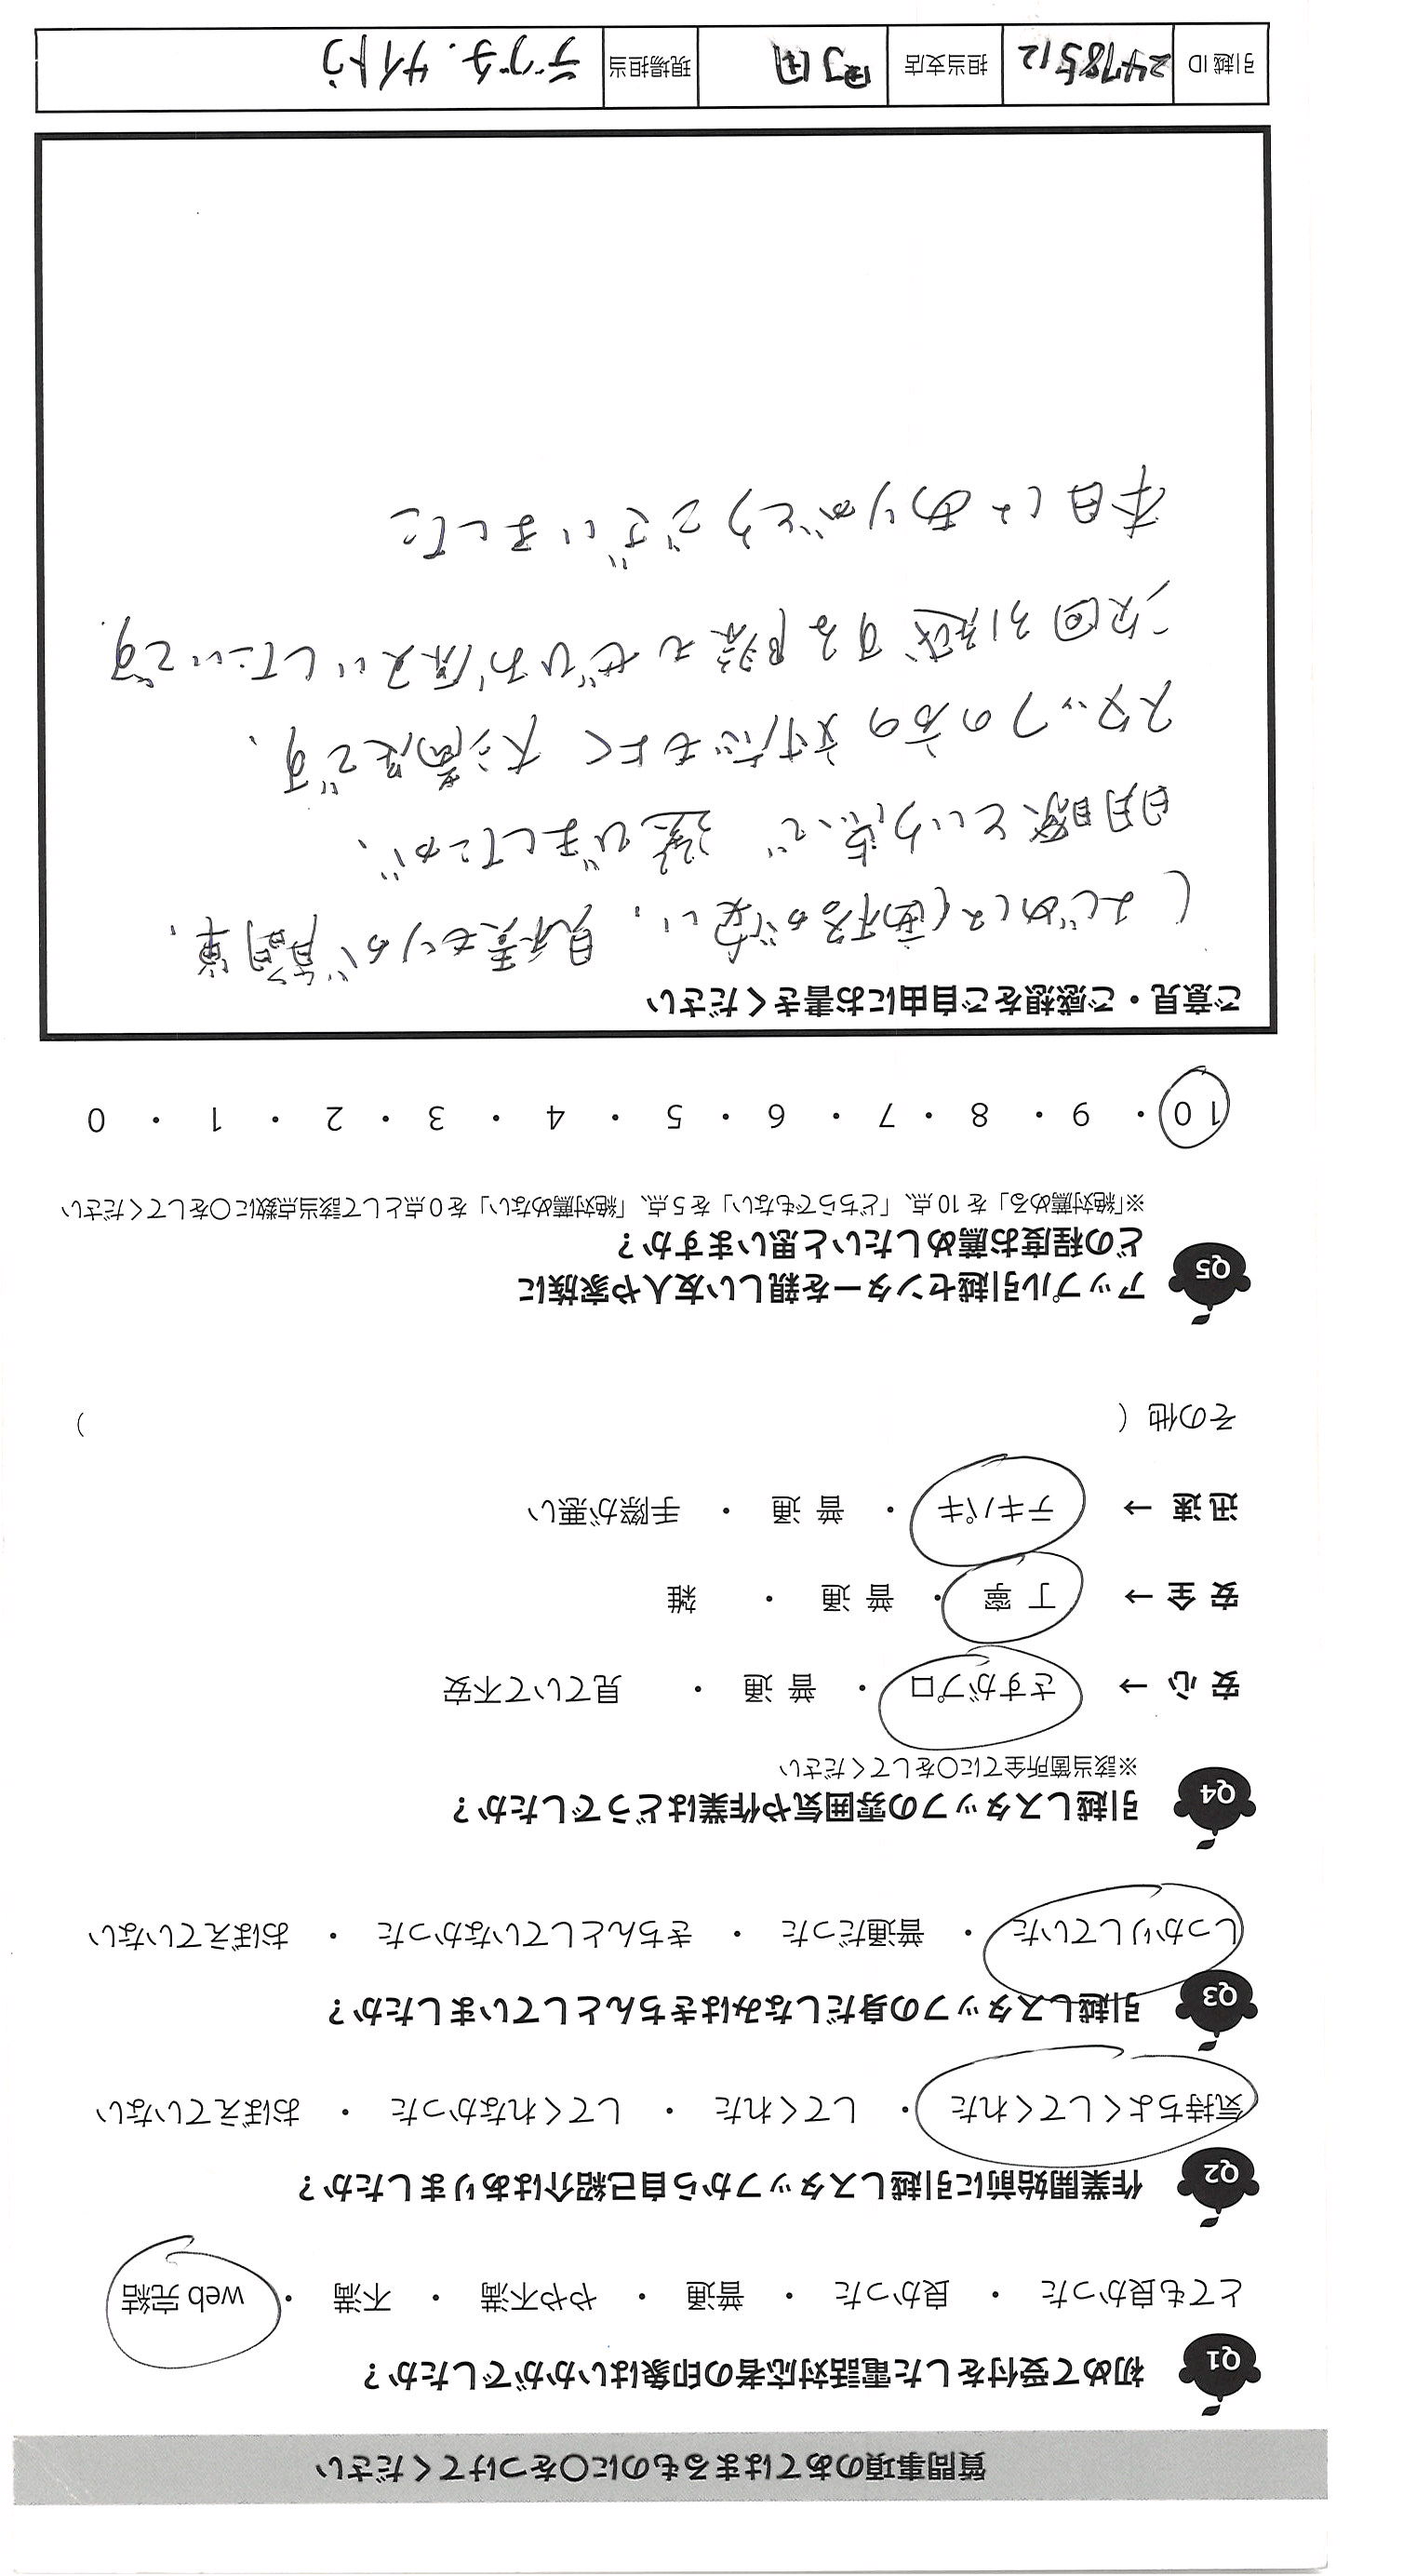 質問事項のあてはまるものに〇をつけてください
Q1 初めて受付をした電話対応者の印象はいかがでしたか？
とても良かった ・ 良かった ・ 普通 ・ やや不満 ・ 不満 ・ web 完結
Q2 作業開始前に引越しスタッフから自己紹介はありましたか？
気持ちよくしてくれた ・ してくれた ・ してくれなかった ・ おぼえていない
Q3 引越しスタッフの身だしなみはきちんとしていましたか？
しっかりしていた ・ 普通だった ・ きちんとしていなかった ・ おぼえていない
Q4 引越しスタッフの雰囲気や作業はどうでしたか？
※該当箇所全てに〇をしてください
安 心 → さすがプロ ・ 普 通 ・ 見ていて不安
安 全 → 丁 寧 ・ 普 通 ・ 雑
迅 速 → テキパキ ・ 普 通 ・ 手際が悪い
その他（ ）
Q5 アップル引越センターを親しい友人や家族に
どの程度お薦めしたいと思いますか？
※「絶対薦める」を 10 点、「どちらでもない」を 5 点、「絶対薦めない」を 0 点として該当点数に〇をしてください
10 ・ 9 ・ 8 ・ 7 ・ 6 ・ 5 ・ 4 ・ 3 ・ 2 ・ 1 ・ 0
ご意見・ご感想をご自由にお書きください
はじめは 価格が安い、見積もりが簡単、
明瞭という点で 選びましたが、
スタッフの方の対応もよく 大満足です、
次回引越する際もぜひお願いしたいです.
本日はありがとうございました
引越 ID 2478512 担当支店 町田 現場担当 デグチ. サイトウ